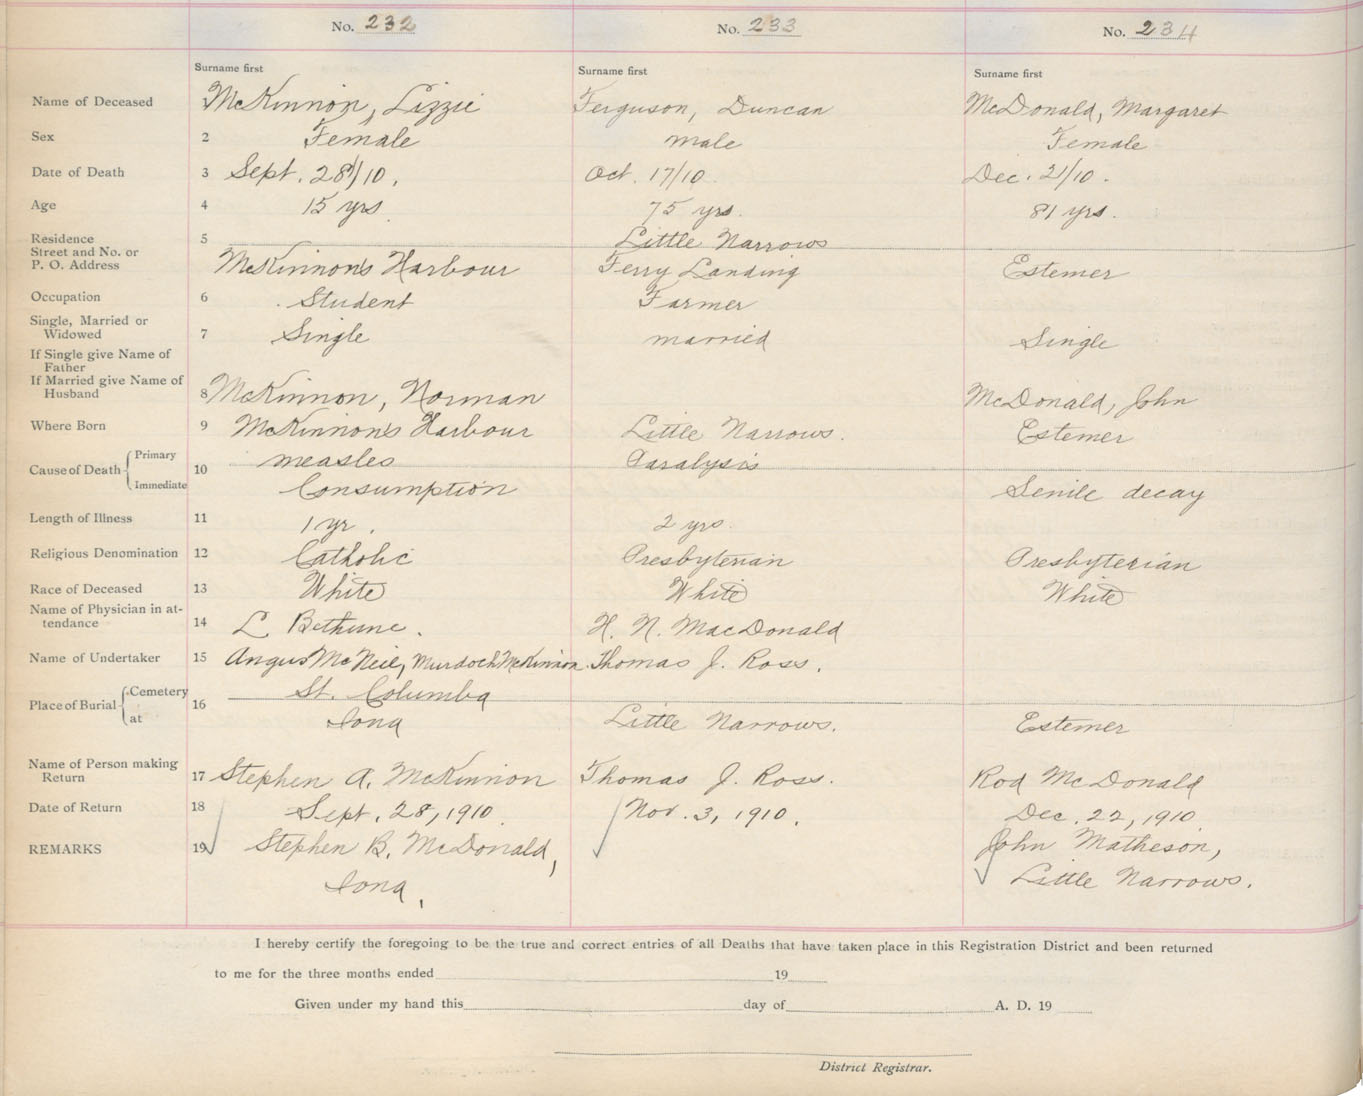 No. 232 No. 233 No. 234
Surname first Surname first Surname first
Name of Deceased 1 McKinnon, Lizzie Ferguson, Duncan McDonald, Margaret
Sex 2 Female male Female
Date of Death 3 Sept. 28/10. Oct. 17/10 Dec. 21/10.
Age 4 15 yrs 75 yrs. 81 yrs.
Residence 5 Little Narrows
Street and No. or
P. O. Address McKinnon's Harbour Ferry Landing Estemer
Occupation 6 Student Farmer
Single, Married or
Widowed 7 Single married Single
If Single give Name of
Father
If Married give Name of
Husband 8 McKinnon, Norman McDonald, John
Where Born 9 McKinnon's Harbour Little Narrows. Estemer
Cause of Death 10 Primary measles Paralysis
Immediate Consumption Senile decay
Length of Illness 11 1 yr. 2 yrs.
Religious Denomination 12 Catholic Presbyterian Presbyterian
Race of Deceased 13 White White White
Name of Physician in at-
tendance 14 L. Bethune. H. N. MacDonald
Name of Undertaker 15 Angus McNeil, Murdoch McKinnon Thomas J. Ross.
Place of Burial 16 Cemetery St. Columba
at Iona Little Narrows. Estemer
Name of Person making
Return 17 Stephen A. McKinnon Thomas J. Ross. Rod McDonald
Date of Return 18 Sept. 28, 1910. Nov. 3, 1910. Dec. 22, 1910
REMARKS 19 Stephen B. McDonald, John Matheson,
Iona, Little Narrows.
I hereby certify the foregoing to be the true and correct entries of all Deaths that have taken place in this Registration District and been returned
to me for the three months ended 19
Given under my hand this day of A. D. 19
District Registrar.